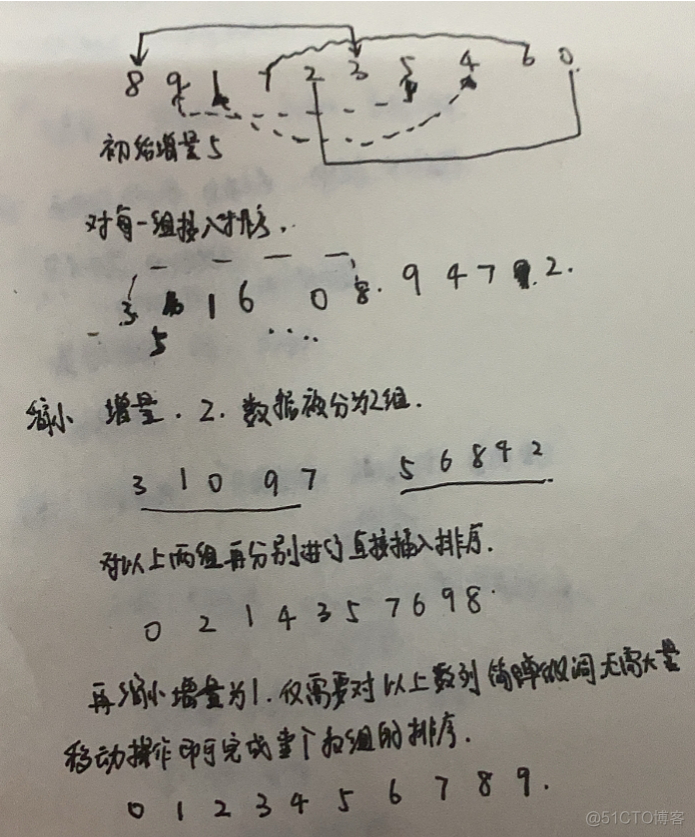 8 9 1 7 2 3 5 4 6 0
初始增量5
对每一组插入排序.
3 1 6 0 8. 9 4 7 2.
5
缩小 增量. 2. 数据被分为2组.
3 1 0 9 7 5 6 8 4 2
对以上两组再分别进行直接插入排序.
0 2 1 4 3 5 7 6 9 8
再缩小增量为1. 仅需要对以上数列简单微调 无需大量
移动操作即可完成整个数组的排序.
0 1 2 3 4 5 6 7 8 9.
@51CTO博客